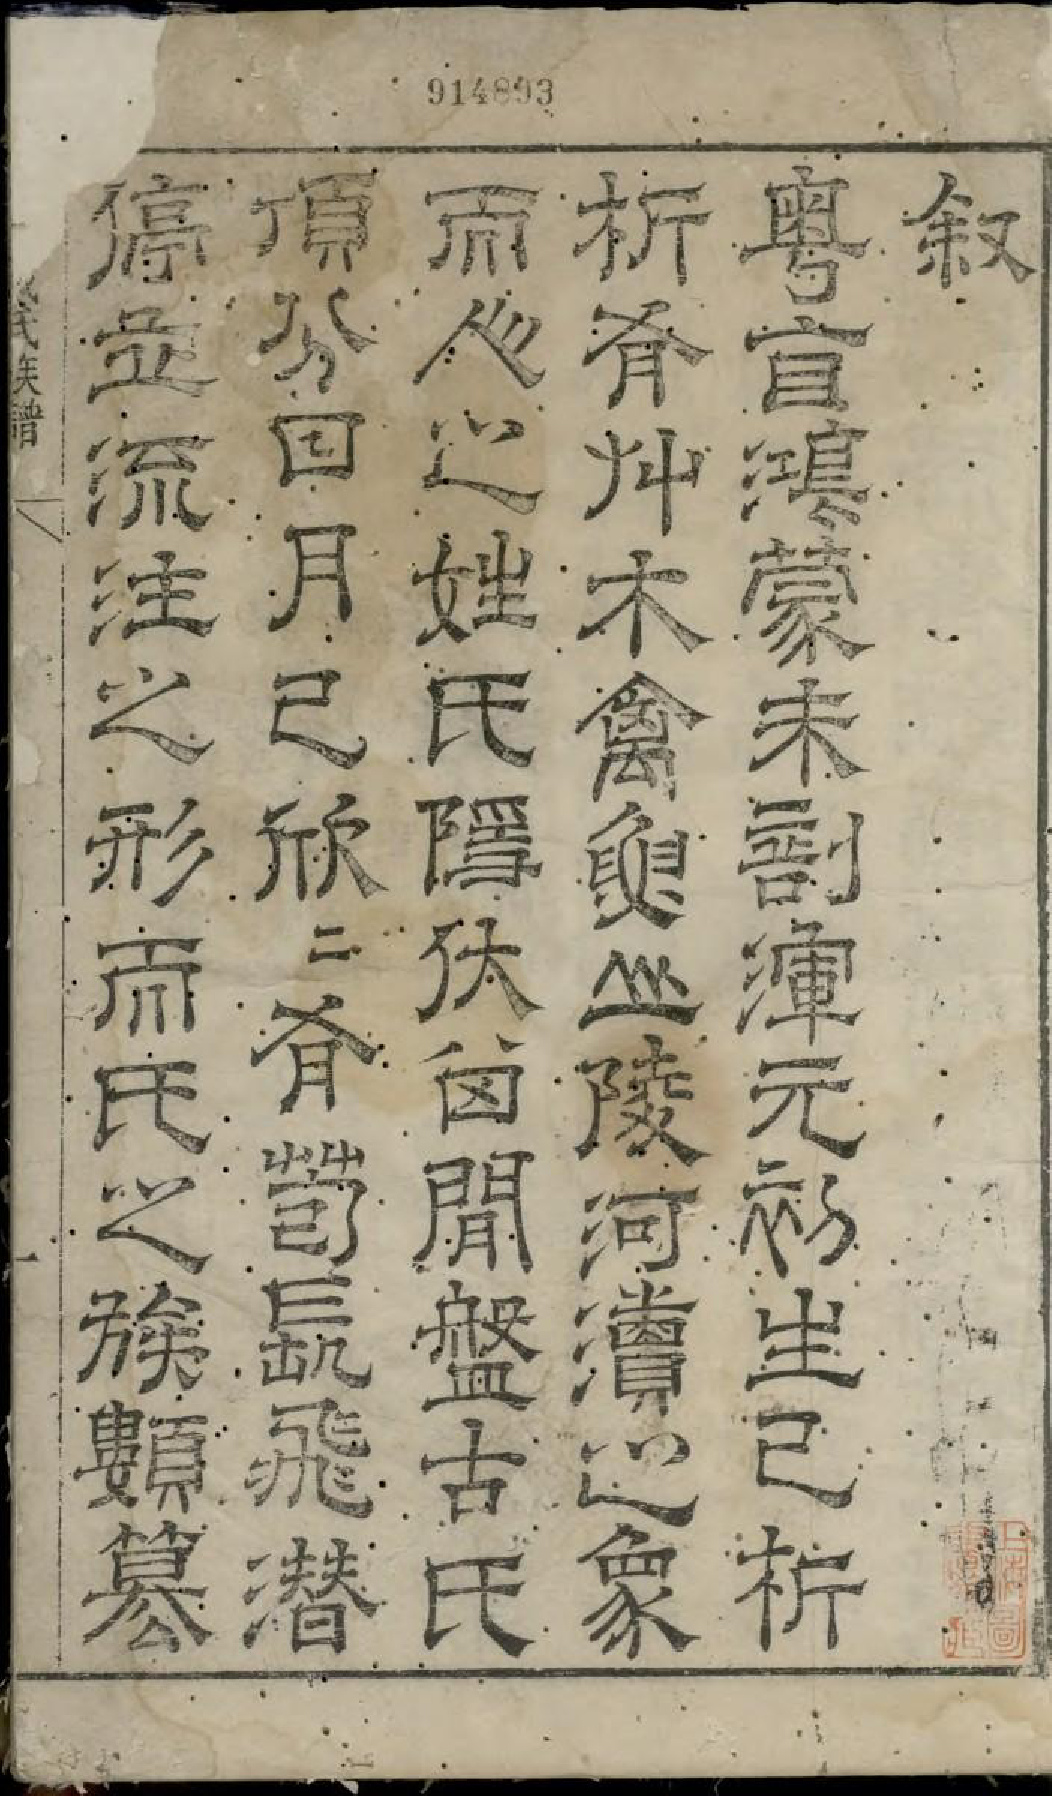 914893
叙
粤盲鴻蒙未剖渾元初生已析
析肴艸木禽魚丘陵河瀆之象
而人之姓氏隱伏囟閒盤古氏
頂分日月已欣二肴飛潛
停並流注之形而氏之族類
氏族譜
一